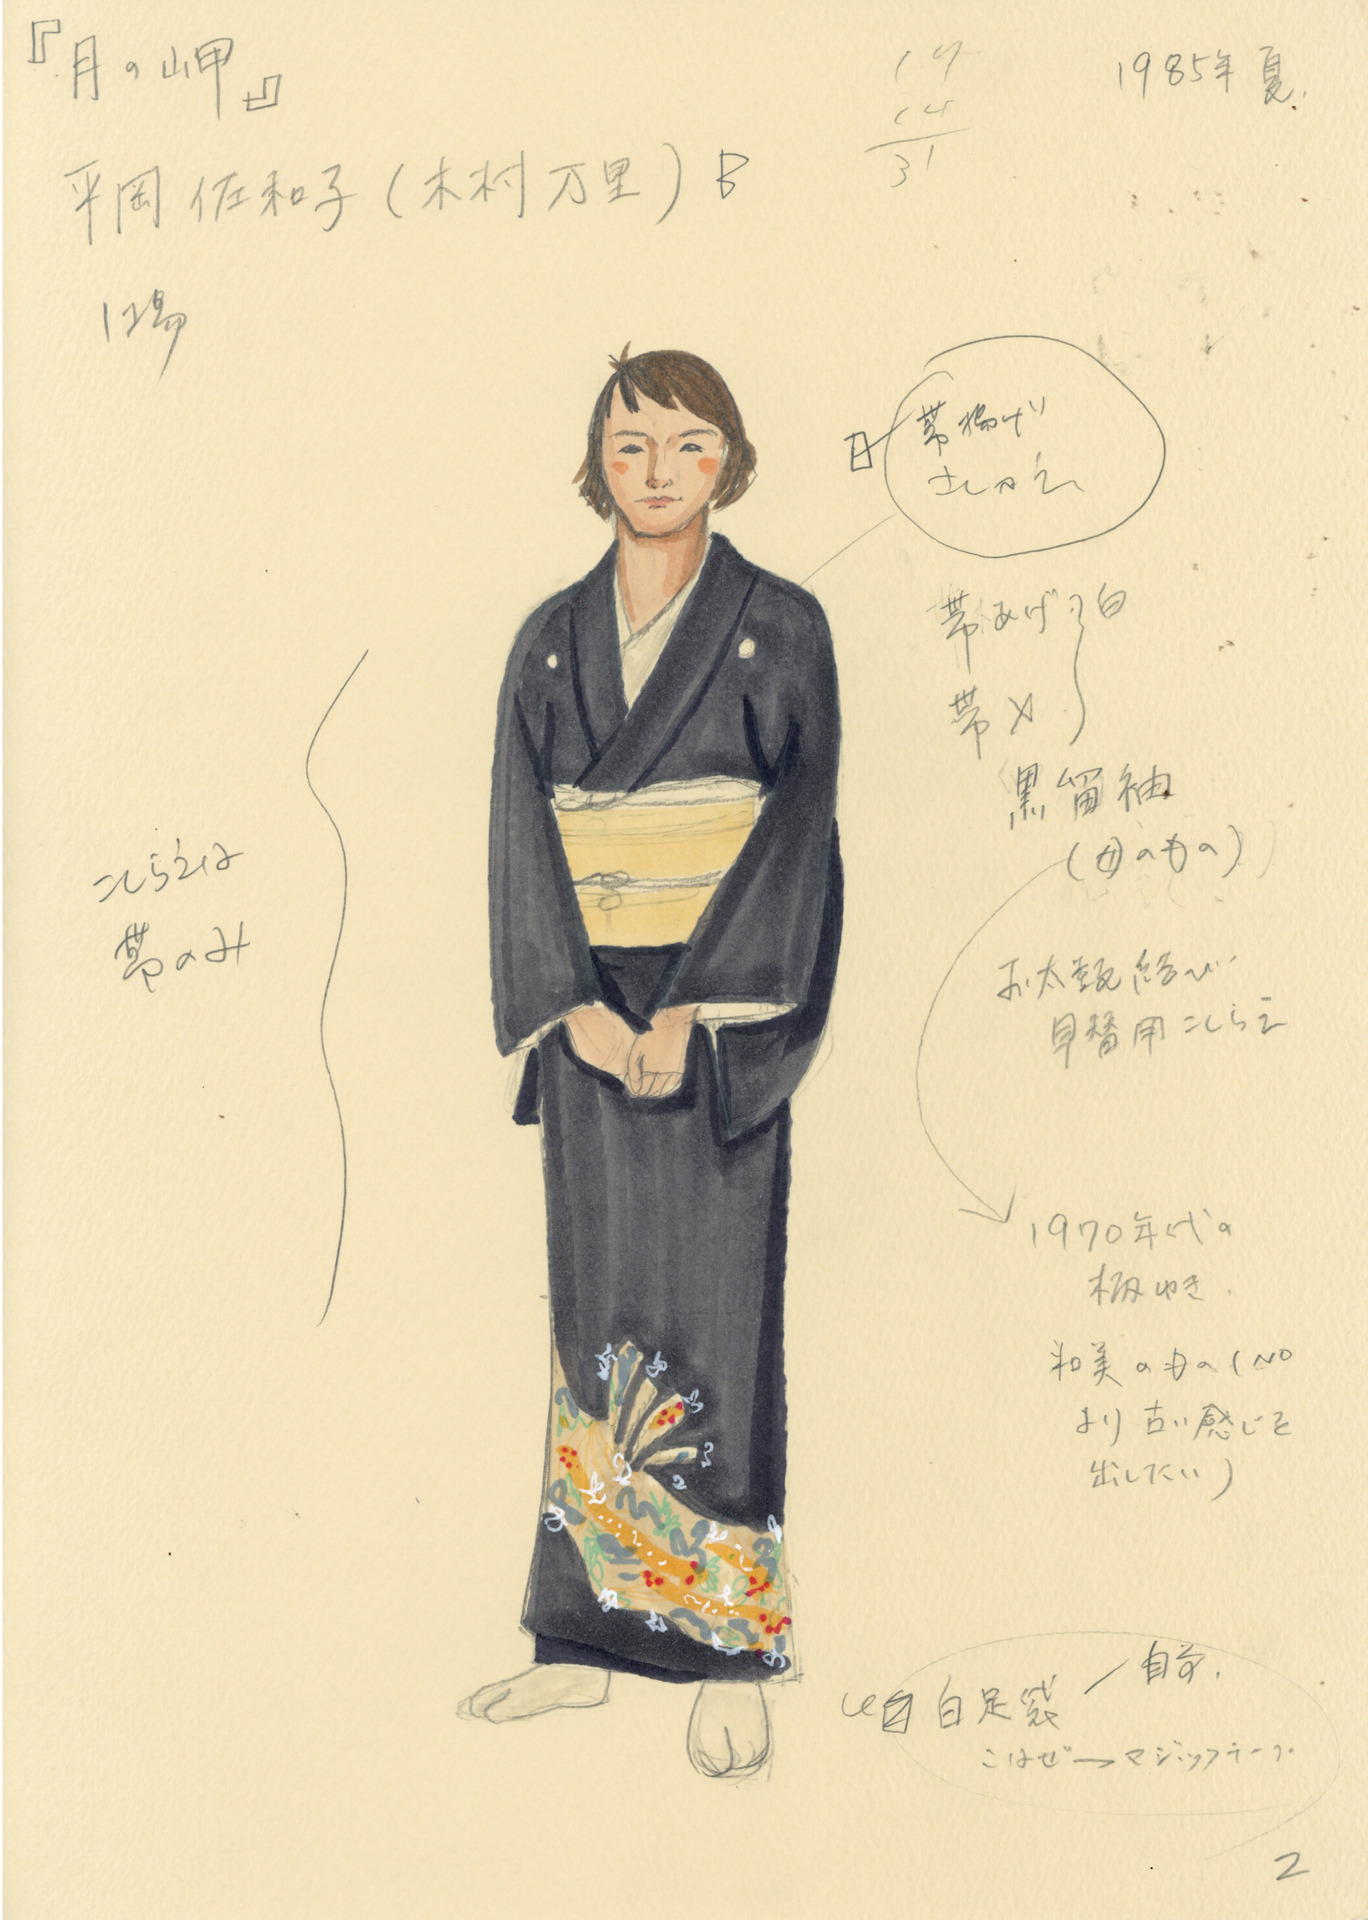 『月の岬』
1985年 夏.
17
14
31
平岡 佐和子(木村万里) B
1場
帯揚げ
帯あげ 白
帯〆
黒留袖
(母のもの)
こしらえは
帯のみ
お太鼓結び
早替用こしらえ
1970年代の
柄ゆき.
和美のもの(NO
より古い感じを
出したい)
自前.
白足袋
こはぜ→マジックテープ
2